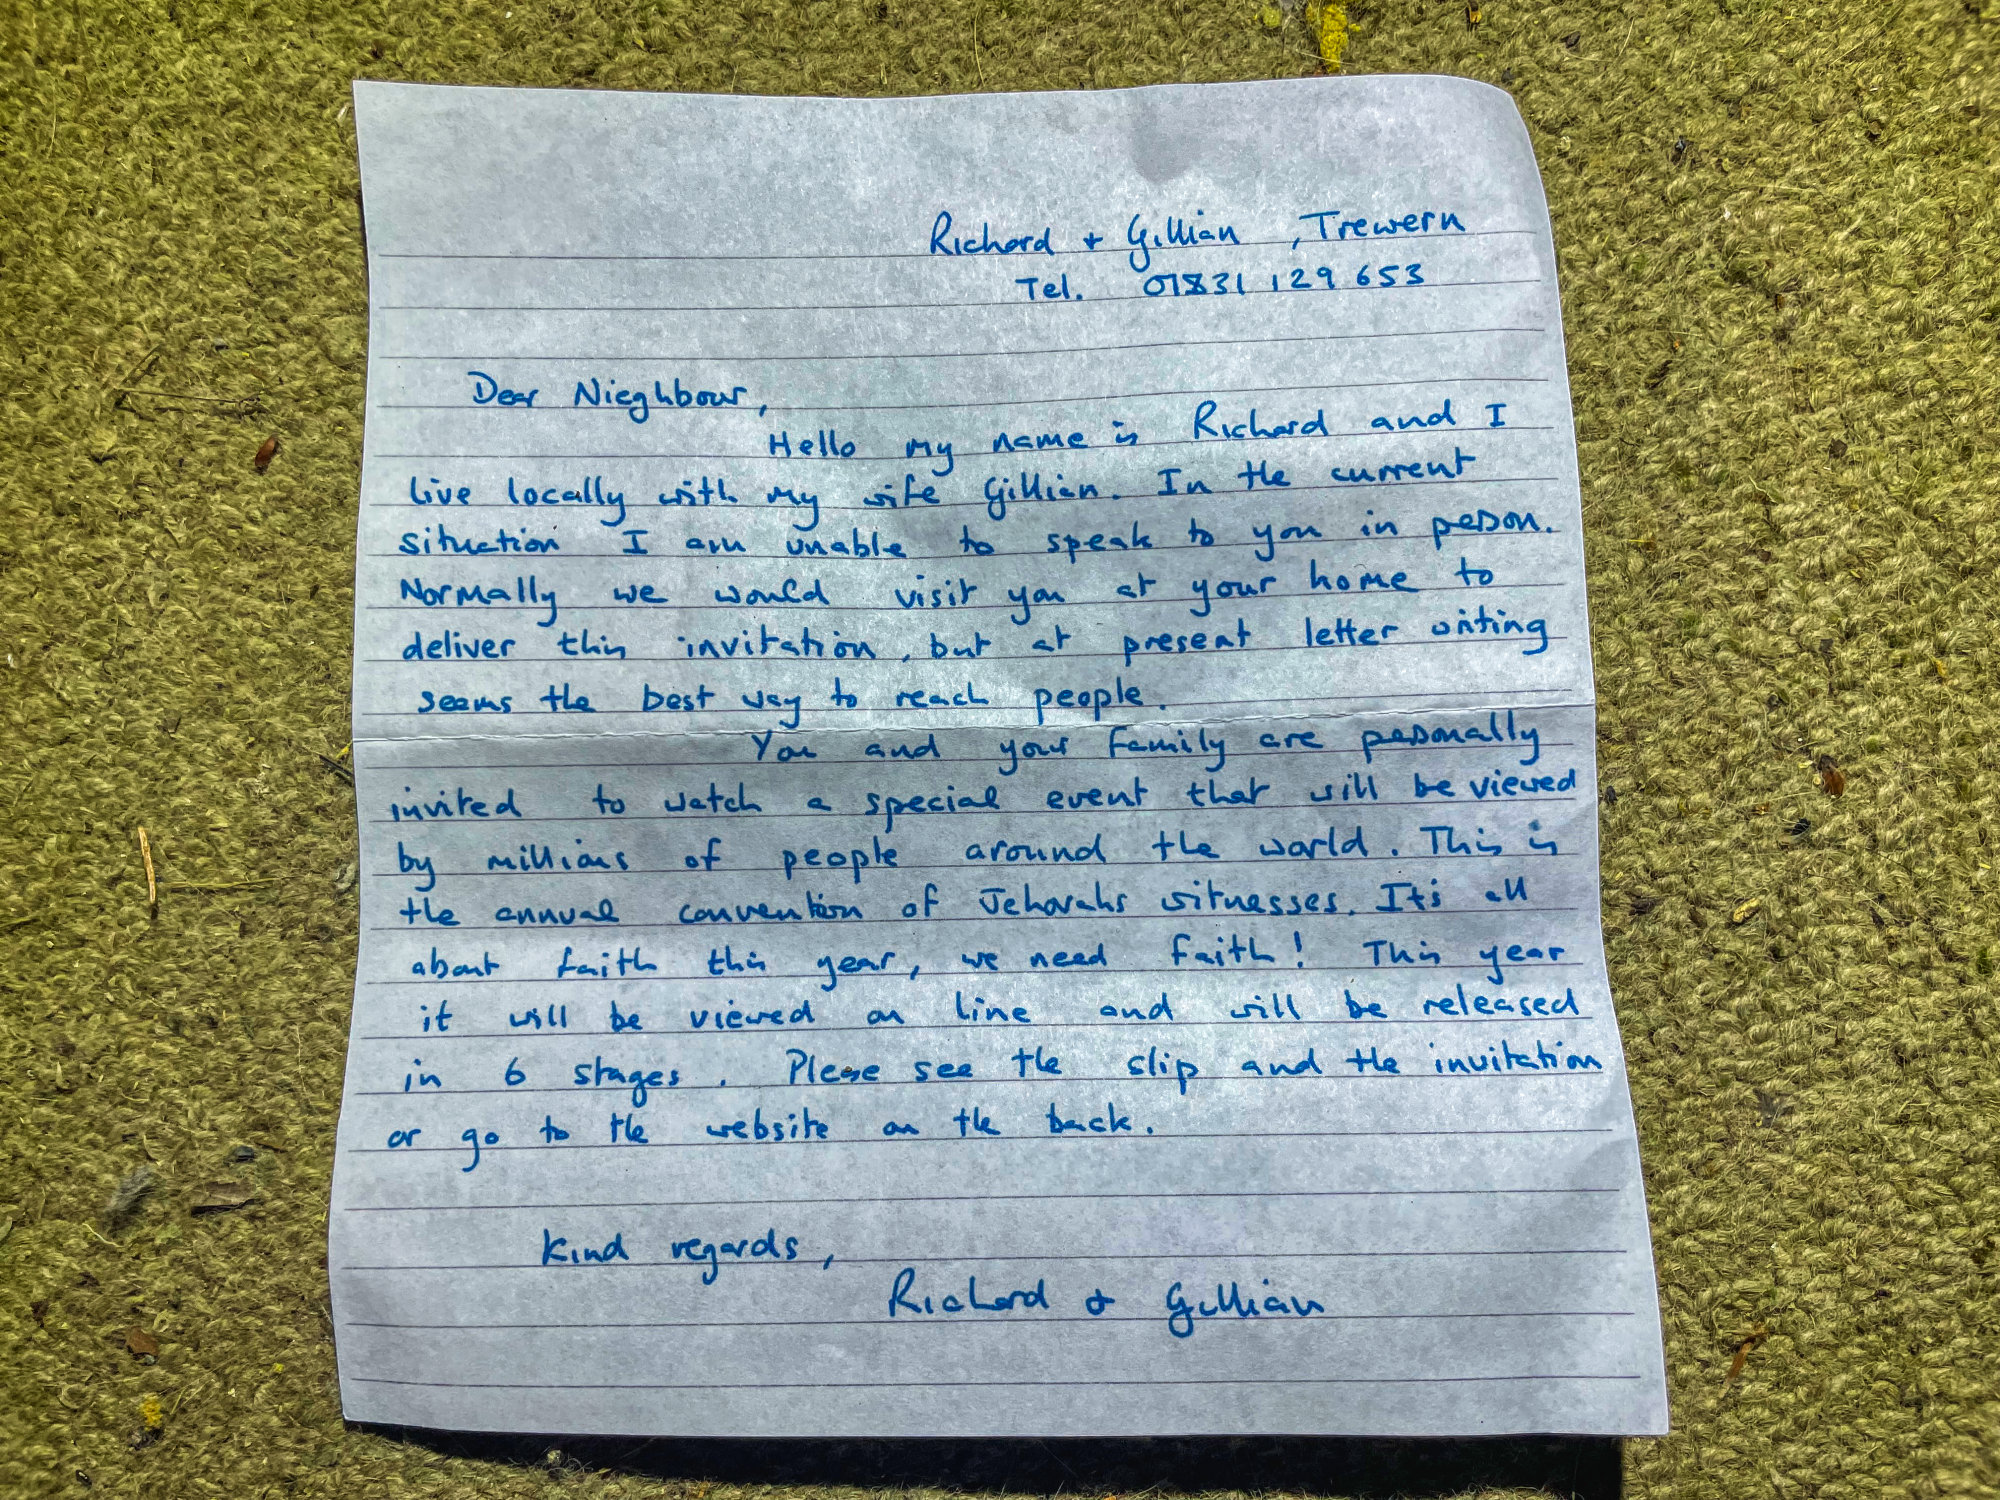 Richard + Gillian , Trewern
Tel. 01831 129 653
Dear Nieghbour,
Hello my name is Richard and I
live locally with my wife Gillian. In the current
situation I am unable to speak to you in person.
Normally we would visit you at your home to
deliver this invitation, but at present letter writing
seems the best way to reach people.
You and your family are personally
invited to watch a special event that will be viewed
by millions of people around the world. This is
the annual convention of Jehovahs witnesses. Its all
about faith this year, we need faith! This year
it will be viewed on line and will be released
in 6 stages. Please see the slip and the invitation
or go to the website on the back.
Kind regards,
Richard & Gillian